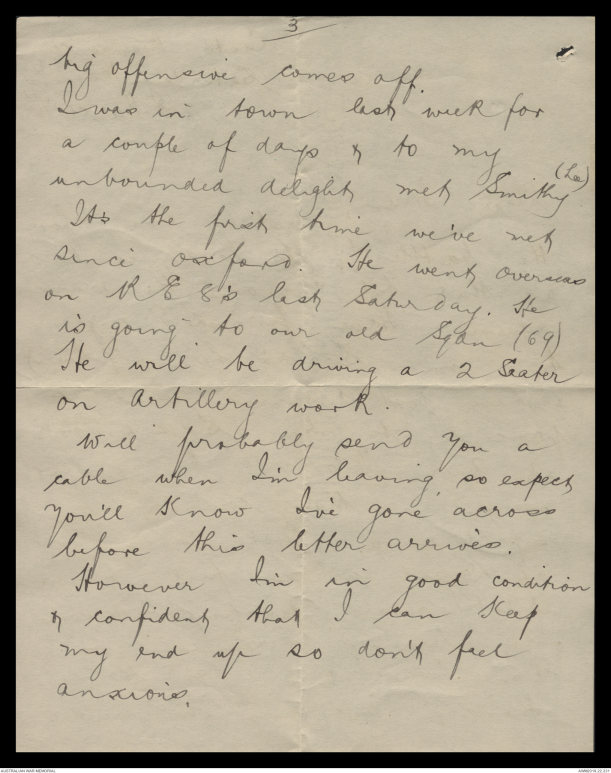 3
big offensive comes off.
I was in town last week for
a couple of days & to my
unbounded delight, met Smithy (Lee)
Its the first time we've met
since oxford. He went overseas
on R E 8's last Saturday. He
is going to our old Sqdn (69)
He will be driving a 2 Seater
on Artillery work.
Will probably send you a
cable when I'm leaving, so expect
you'll know I've gone across
before this letter arrives.
However I'm in good condition
& confident that I can keep
my end up so don't feel
anxious.
AUSTRALIAN WAR MEMORIAL